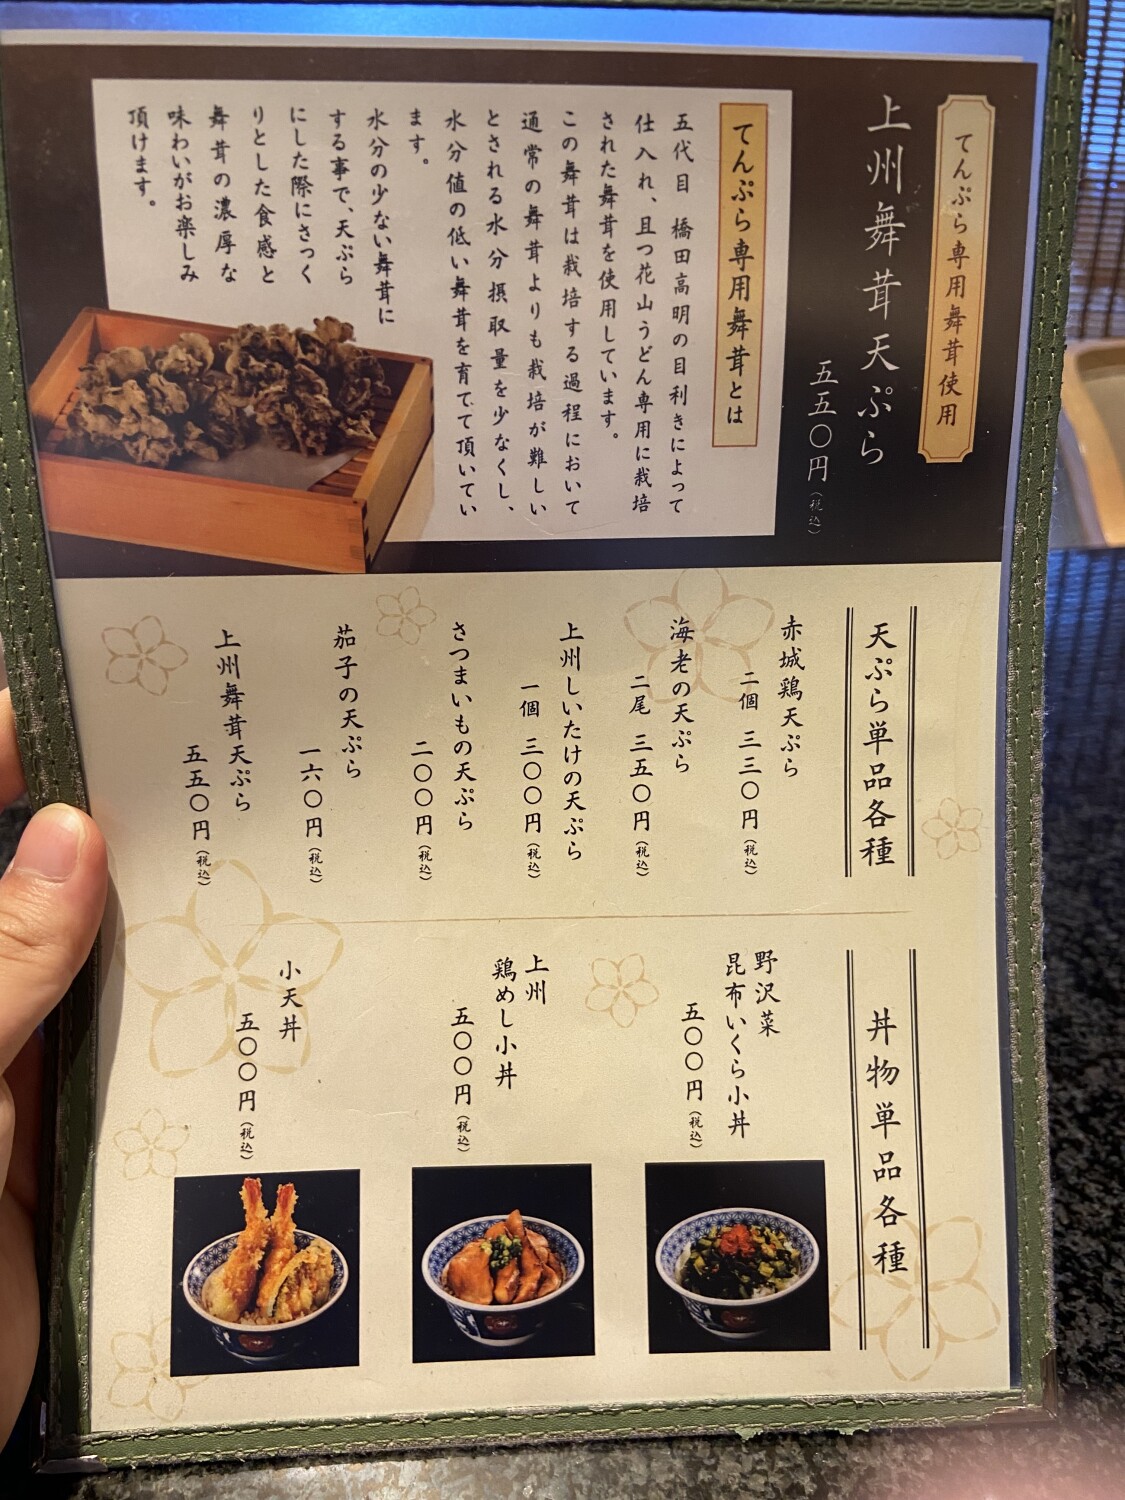 てんぷら専用舞茸使用
上州舞茸天ぷら
五五〇円(税込)
てんぷら専用舞茸とは
五代目 橋田高明の目利きによって
仕入れ、且つ花山うどん専用に栽培
された舞茸を使用しています。
この舞茸は栽培する過程において
通常の舞茸よりも栽培が難しい
とされる水分摂取量を少なくし、
水分値の低い舞茸を育てて頂いてい
ます。
水分の少ない舞茸に
する事で、天ぷら
にした際にさっく
りとした食感と
舞茸の濃厚な
味わいがお楽しみ
頂けます。
天ぷら単品各種
赤城鶏天ぷら
二個 三三〇円(税込)
海老の天ぷら
二尾 三五〇円(税込)
上州しいたけの天ぷら
一個 三〇〇円(税込)
さつまいもの天ぷら
二〇〇円(税込)
茄子の天ぷら
一六〇円(税込)
上州舞茸天ぷら
五五〇円(税込)
丼物単品各種
野沢菜
昆布いくら小丼
五〇〇円(税込)
上州
鶏めし小丼
五〇〇円(税込)
小天丼
五〇〇円(税込)